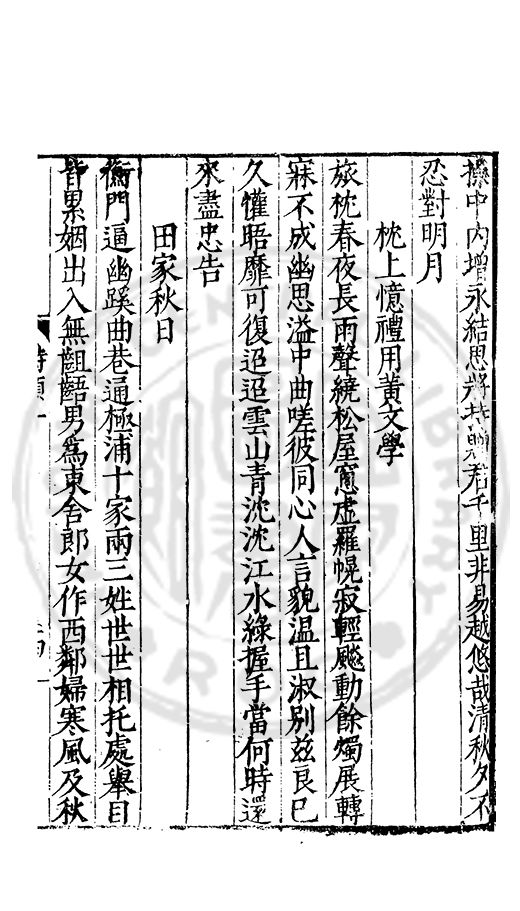 操中內増永結思將共贈君千里非易越悠哉清秋夕不
忍對明月
枕上憶禮用黃文學
旅枕春夜長雨聲繞松屋窻虛羅幌寂輕飈動餘燭展轉
寐不成幽思溢中曲嗟彼同心人言貌温且淑别兹良巳
久懽晤靡可復迢迢雲山青沈沈江水綠握手當何時還
來盡忠告
田家秋日
衡門逼幽蹊曲巷通極浦十家兩三姓世世相托處舉目
皆累姻出入無齟齬男爲東舍郎女作西鄰婦寒風及秋
詩類一